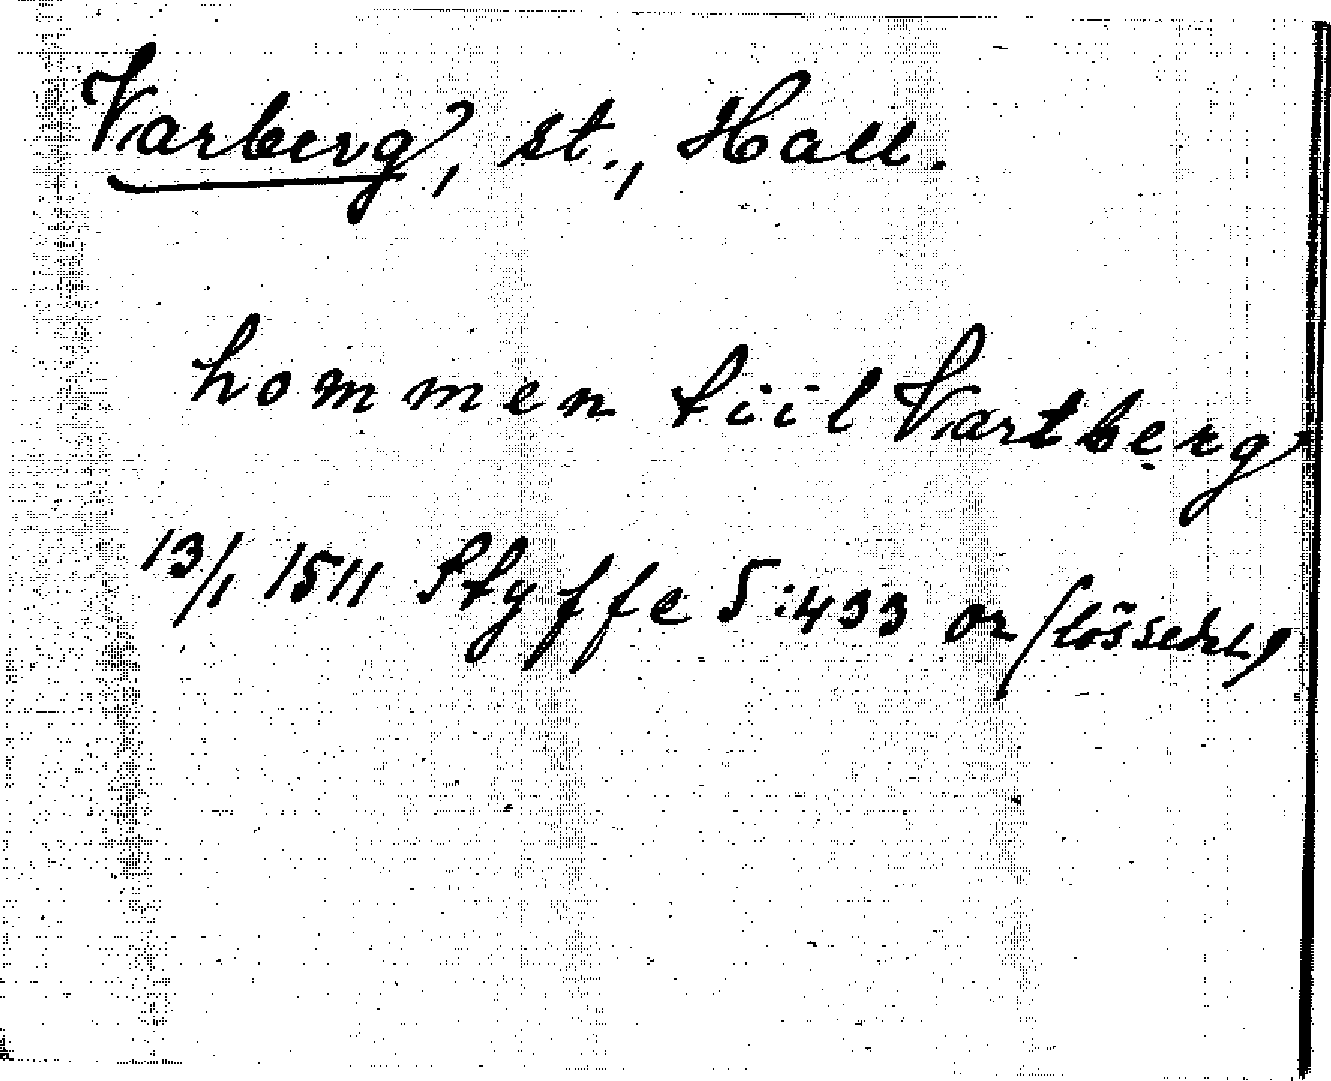 Varberg, st., Hall.
hommen tiil Vartberg
13/1 1511 Styffe 5:433 or (lössedel)